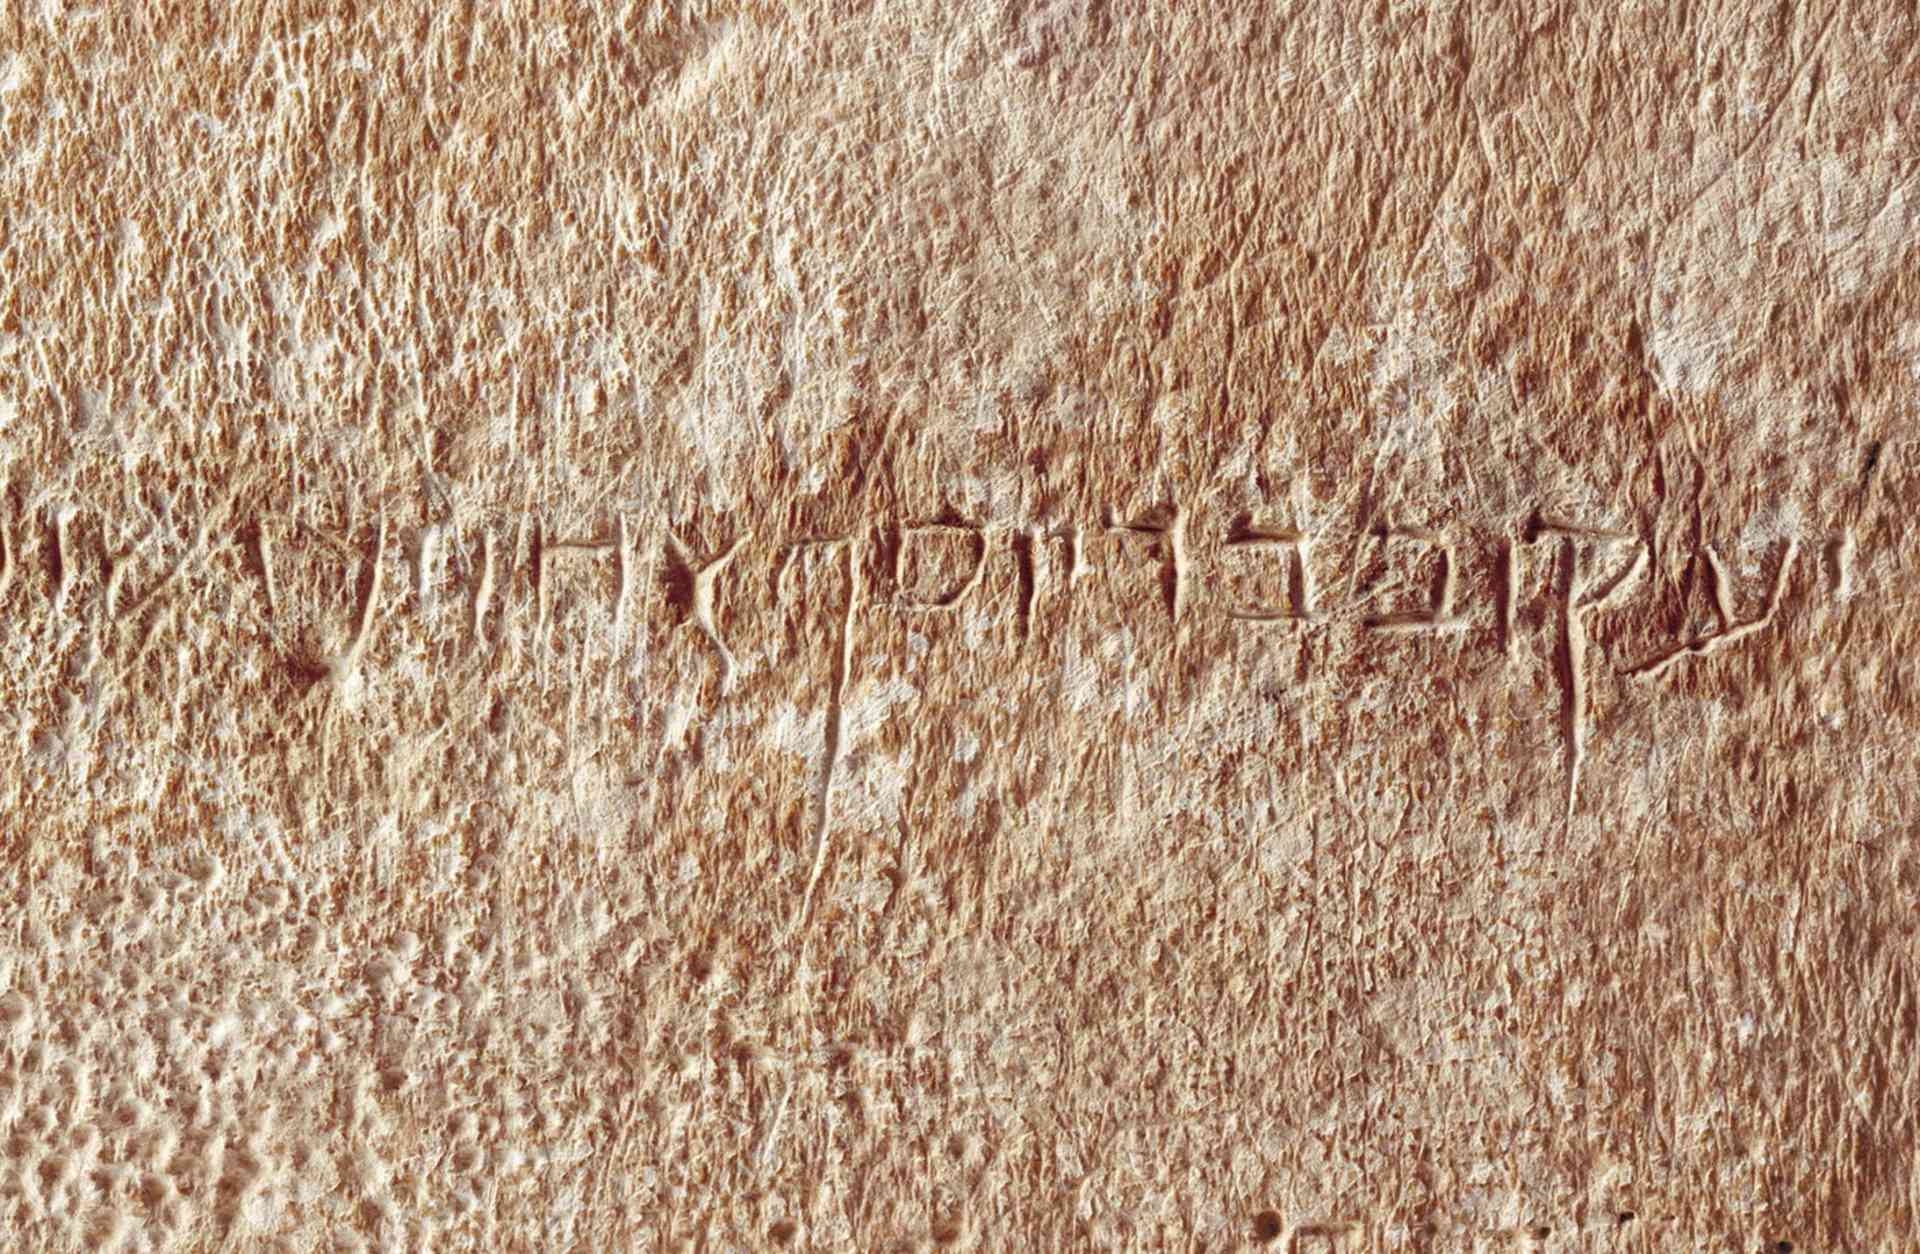 יעקוב בר יוסף אחוי דישוע